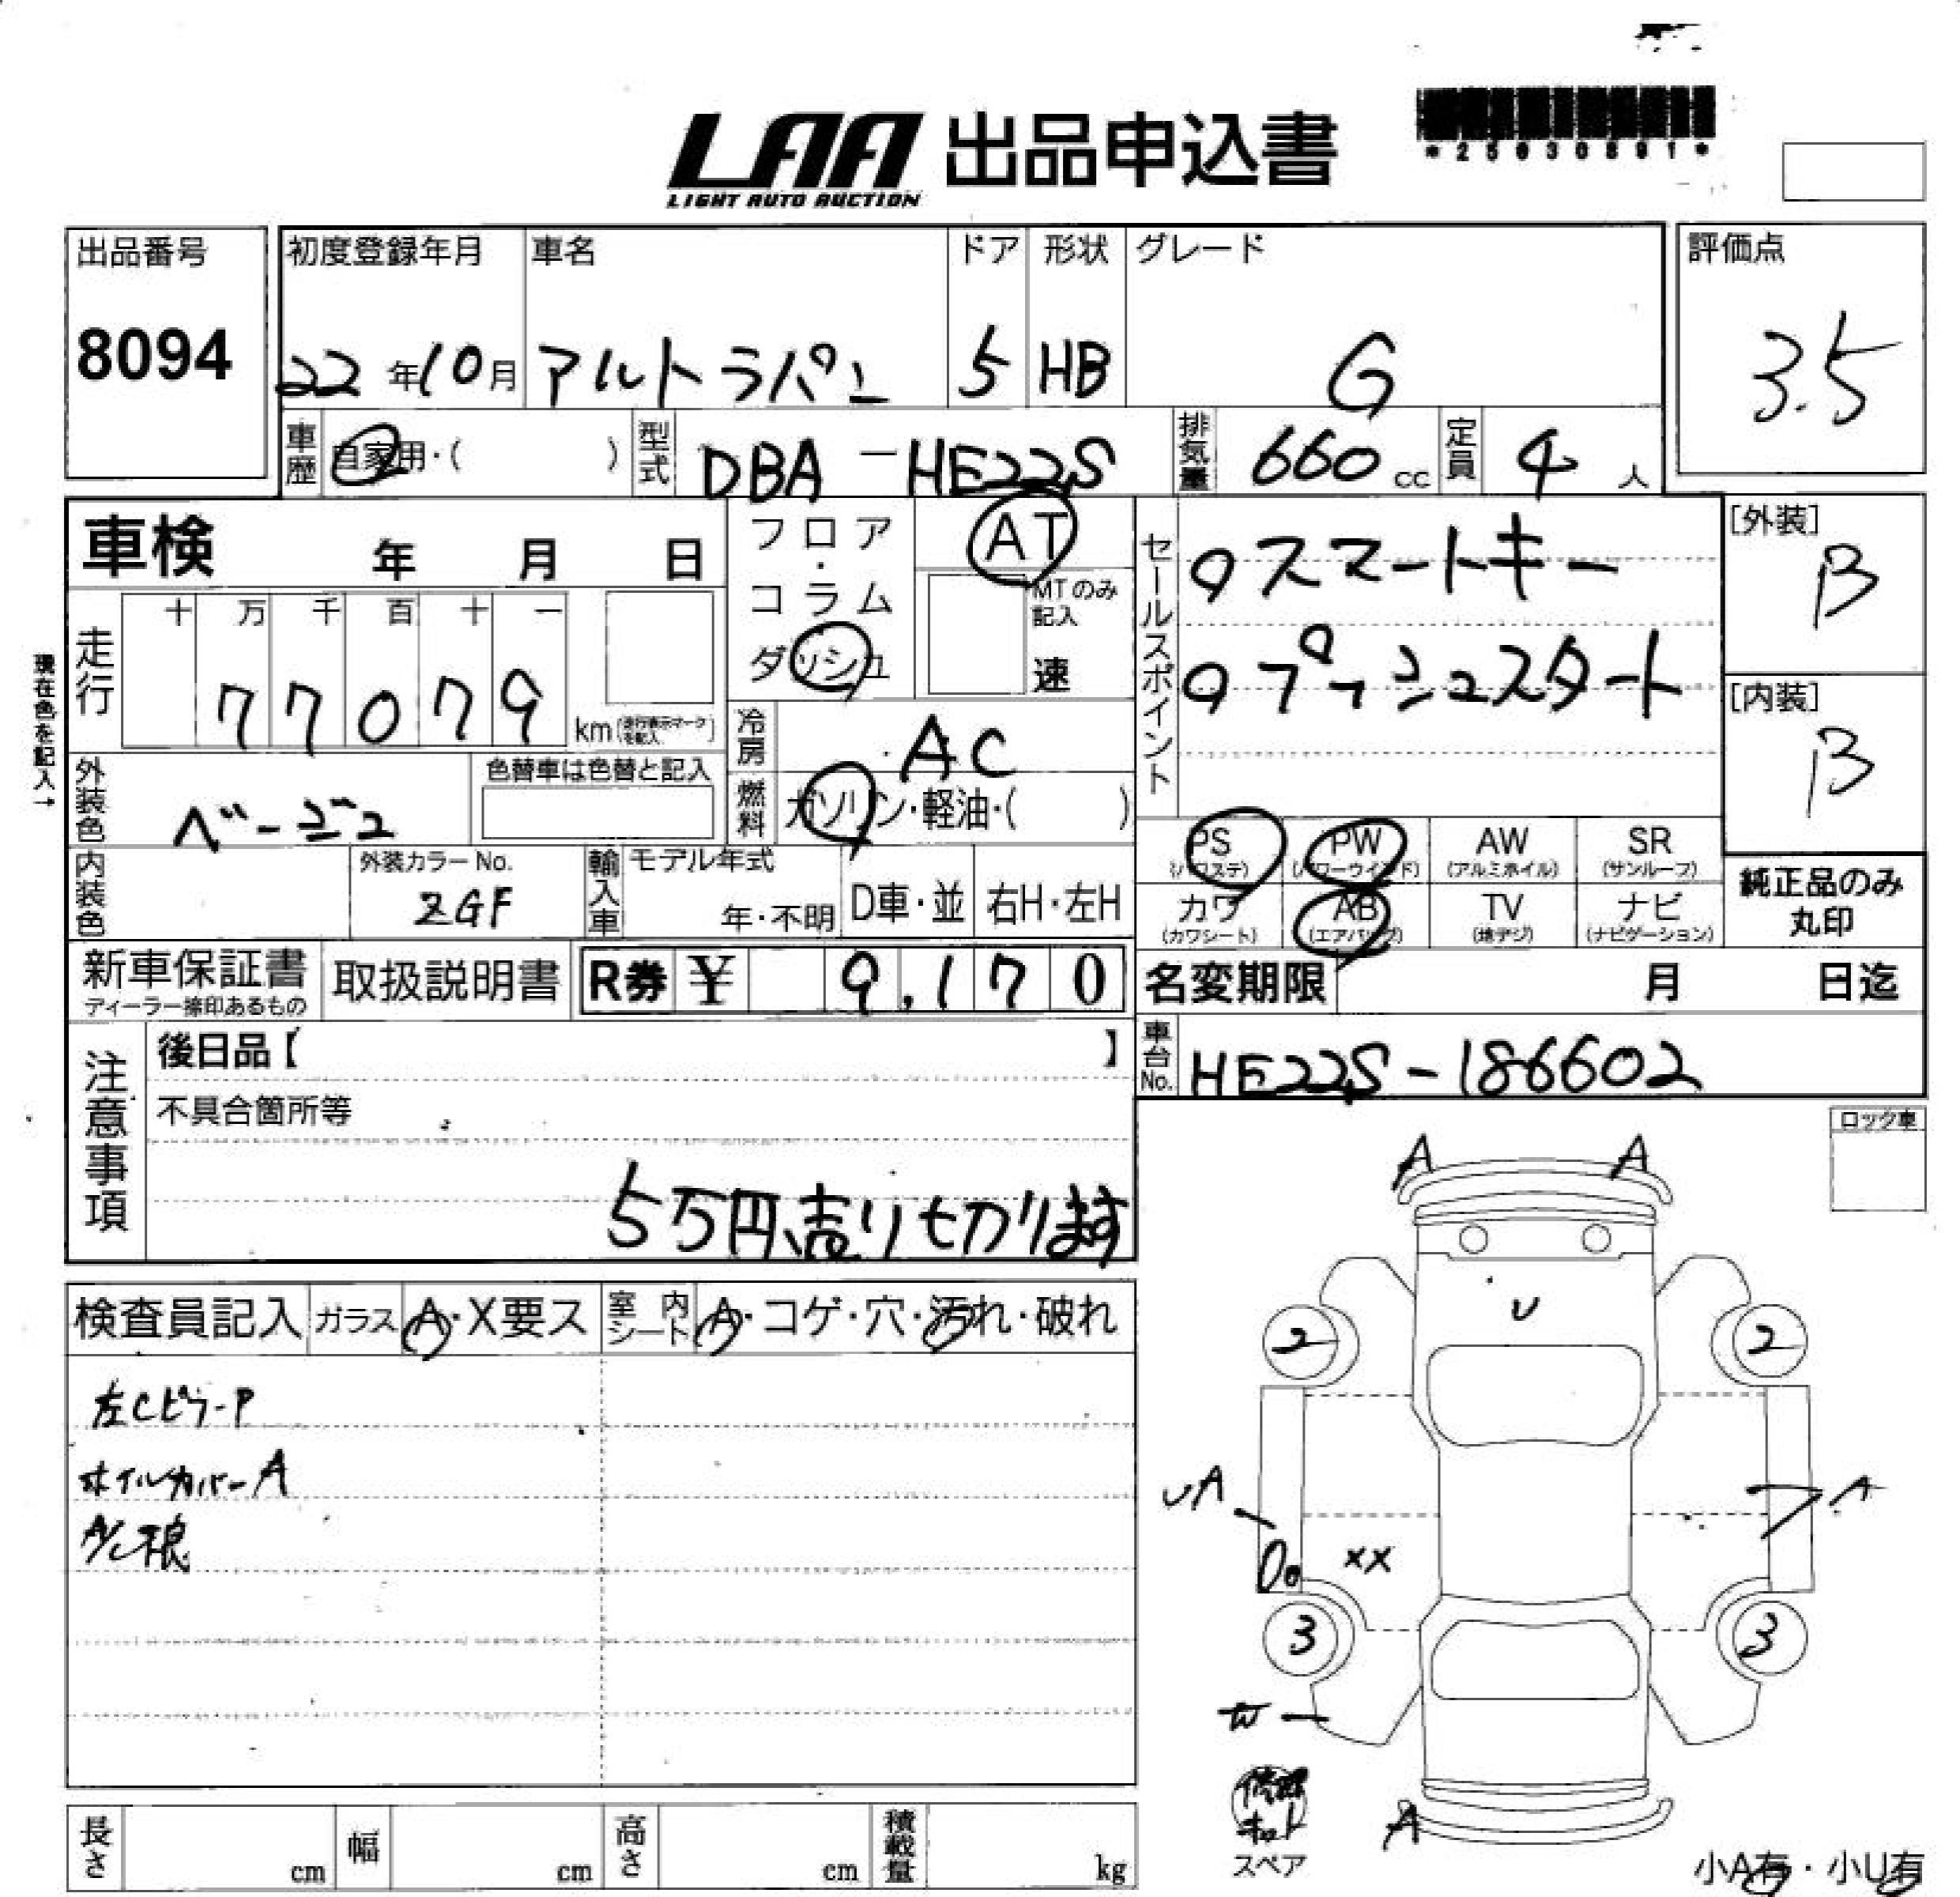 LAA 出品申込書
LIGHT AUTO AUCTION
*25030891*
出品番号
8094
初度登録年月
22年10月
車名
アルトラパン
ドア
5
形状
HB
グレード
G
評価点
3.5
車歴 自家用・( )
型式 DBA-HE22S
排気量 660 cc
定員 4 人
車検 年 月 日
フロア・コラム
ダッシュ
AT
MTのみ記入
速
セールスポイント
スマートキー
プッシュスタート
[外装]
B
[内装]
B
現在色を記入→
走行
十 万 千 百 十 一
77079
km (走行表示マークを記入)
冷房 AC
燃料 ガソリン・軽油・( )
外装色 ベージュ
色替車は色替と記入
内装色
外装カラーNo.
ZGF
輸入車
モデル年式
年・不明
D車・並
右H・左H
PS (パワステ)
PW (パワーウインド)
AW (アルミホイル)
SR (サンルーフ)
カワ (カワシート)
AB (エアバッグ)
TV (地デジ)
ナビ (ナビゲーション)
純正品のみ
丸印
新車保証書
ディーラー捺印あるもの
取扱説明書
R券 ¥ 9,170
名変期限 月 日迄
車台No. HE22S-186602
注意事項
後日品【 】
不具合箇所等
5万円、売り切ります
ロック車
検査員記入
ガラス A・X要ス
室内シート A・コゲ・穴・汚れ・破れ
左Cピラ-P
ホイルカバーA
A A
U
2 2
UA
A
XX
3 3
W
A
修理
キット
スペア
小A有・小U有
長さ cm
幅 cm
高さ cm
積載量 kg